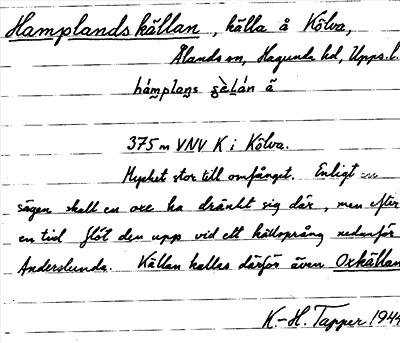 Hamplandskällan, källa å Kölva,
Ålands sn, Hagunda hd, Upps. l.
hámplaṇs
375 m VNV K i Kölva.
Mycket stor till omfånget. Enligt
sägen skall en oxe ha dränkt sig där, men efter
en tid flöt den upp vid ett källsprång nedanför
Anderslunda. Källan kallas därför även Oxkällan
K.-H. Tapper 1944